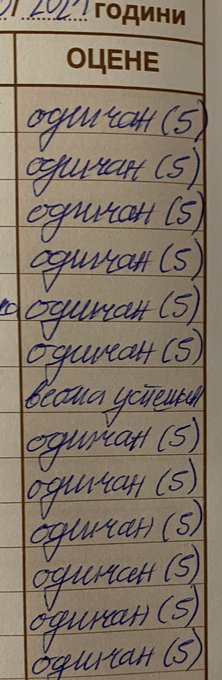 2021 години
ОЦЕНЕ
одличан (5)
одличан (5)
одличан (5)
одличан (5)
одличан (5)
одличан (5)
веома успешан
одличан (5)
одличан (5)
одличан (5)
одличан (5)
одличан (5)
одличан (5)